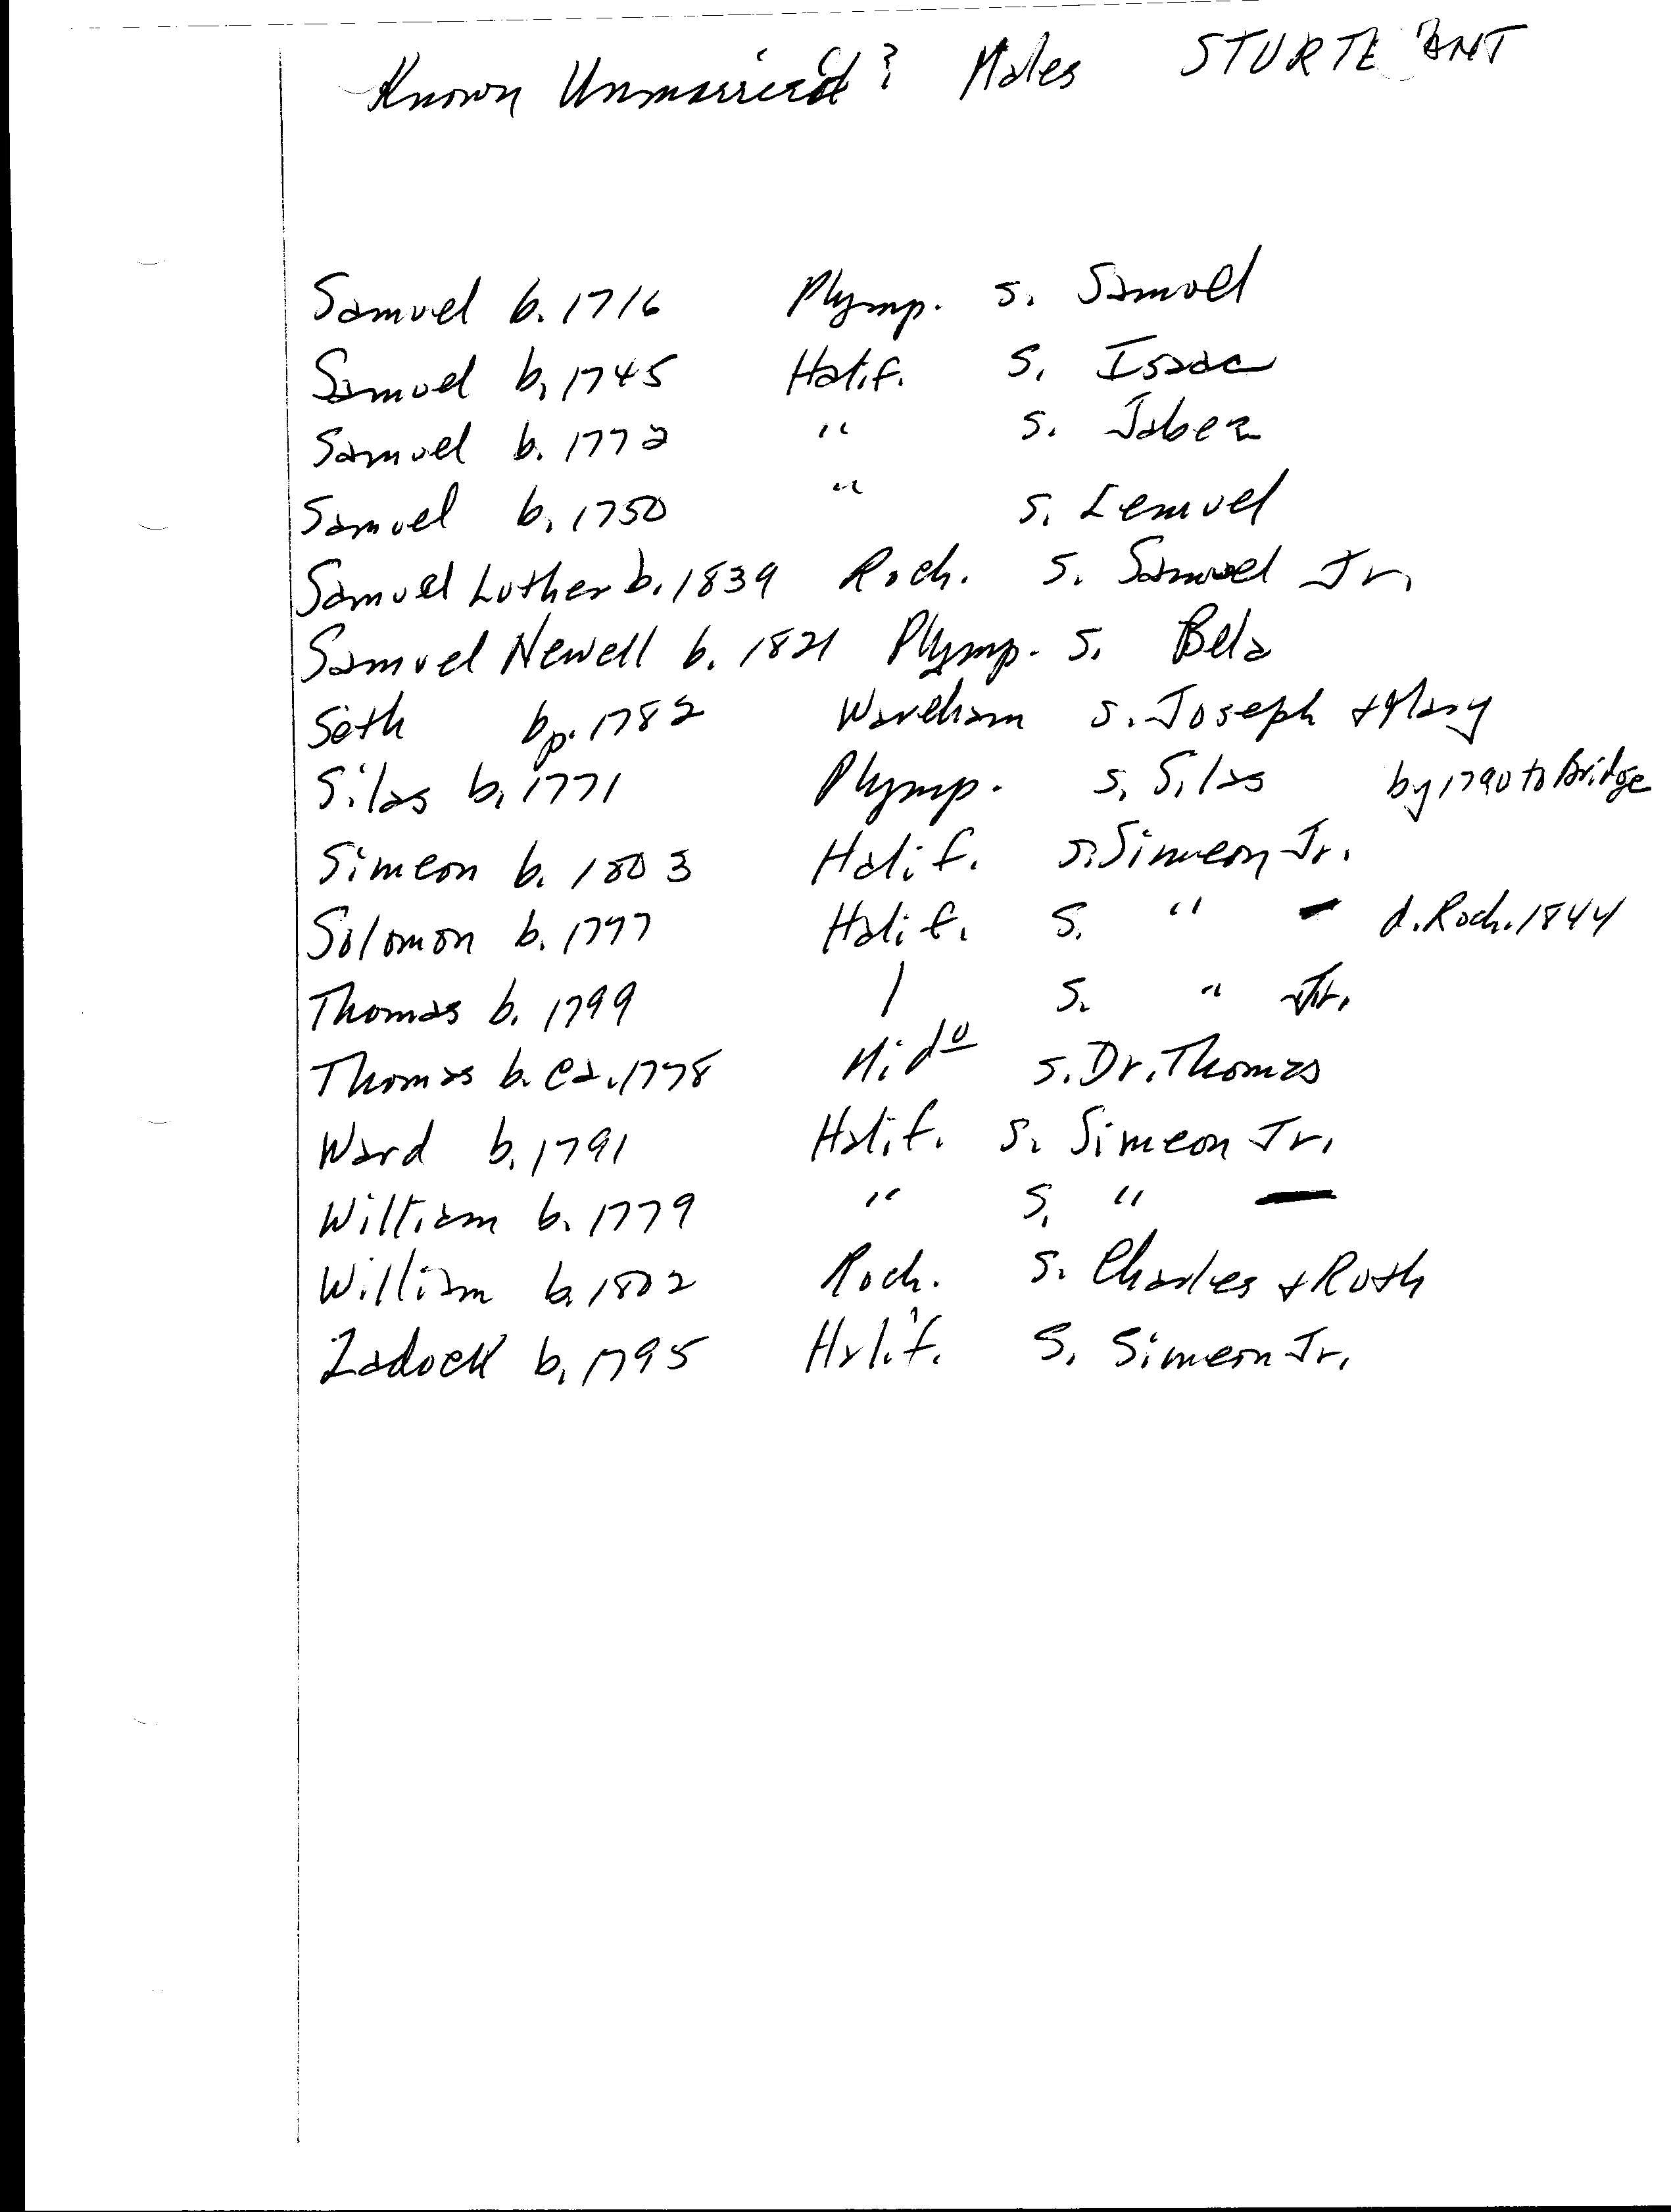 Known Unmarried? Males STURTEVANT
Samuel b. 1716 Plymp. s. Samuel
Samuel b. 1745 Halif. s. Isaac
Samuel b. 1772 " s. Jabez
Samuel b. 1750 " s. Lemuel
Samuel Luther b. 1839 Roch. s. Samuel Jr.
Samuel Newell b. 1821 Plymp. s. Bela
Seth bp. 1782 Wareham s. Joseph + Mary
Silas b. 1771 Plymp. s. Silas by 1790 to Bridge
Simeon b. 1803 Halif. s. Simeon Jr.
Solomon b. 1797 Halif. s. " – d. Roch. 1844
Thomas b. 1799 / s. " Jr.
Thomas b. ca. 1778 Mido s. Dr. Thomas
Ward b. 1791 Halif. s. Simeon Jr.
William b. 1779 " s. " –
William b. 1802 Roch. s. Charles + Ruth
Zadock b. 1795 Halif. s. Simeon Jr.